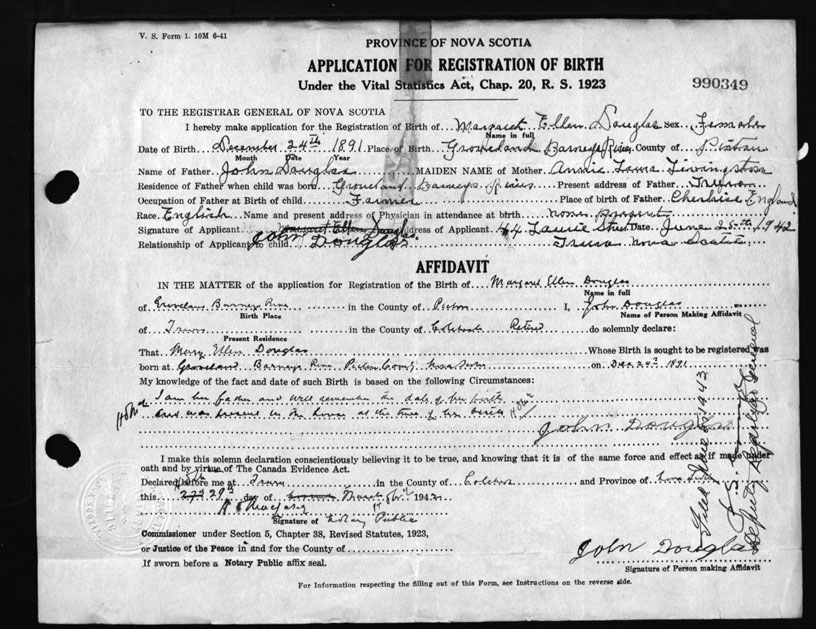 V. S. Form 1. 10M 6-41
PROVINCE OF NOVA SCOTIA
APPLICATION FOR REGISTRATION OF BIRTH
Under the Vital Statistics Act, Chap. 20, R. S. 1923
990349
TO THE REGISTRAR GENERAL OF NOVA SCOTIA
I hereby make application for the Registration of Birth of Margaret Ellen Douglas Sex Female
Name in full
Date of Birth December 24th 1891 Place of Birth Barneys River County of Pictou
Month Date Year
Name of Father John Douglas MAIDEN NAME of Mother Annie
Residence of Father when child was born Barneys River Present address of Father Truro
Occupation of Father at Birth of child Farmer Place of birth of Father England
Race English Name and present address of Physician in attendance at birth none
Signature of Applicant Margaret Ellen Address of Applicant 64 Laurie Street Date June 25th 1942
Relationship of Applicant to child John Douglas Truro Nova Scotia
AFFIDAVIT
IN THE MATTER of the application for Registration of the Birth of Margaret Ellen Douglas
Name in full
of Barneys River in the County of Pictou I, John Douglas
Birth Place Name of Person Making Affidavit
of Truro in the County of Colchester Retired do solemnly declare:
Present Residence
That Mary Ellen Douglas Whose Birth is sought to be registered was
born at Barneys River Pictou County Nova Scotia on Dec 24th 1891
My knowledge of the fact and date of such Birth is based on the following Circumstances:
I am her father and well remember the date of her birth
and was present in the house at the time of her birth
John Douglas
I make this solemn declaration conscientiously believing it to be true, and knowing that it is of the same force and effect as if made under
oath and by virtue of The Canada Evidence Act.
Declared before me at Truro in the County of Colchester and Province of Nova Scotia
this day of 1942
Signature of Notary Public
Commissioner under Section 5, Chapter 38, Revised Statutes, 1923,
or Justice of the Peace in and for the County of
If sworn before a Notary Public affix seal.
John Douglas
Signature of Person making Affidavit
For Information respecting the filling out of this Form, see Instructions on the reverse side.
Filed June 1943
Deputy Registrar General